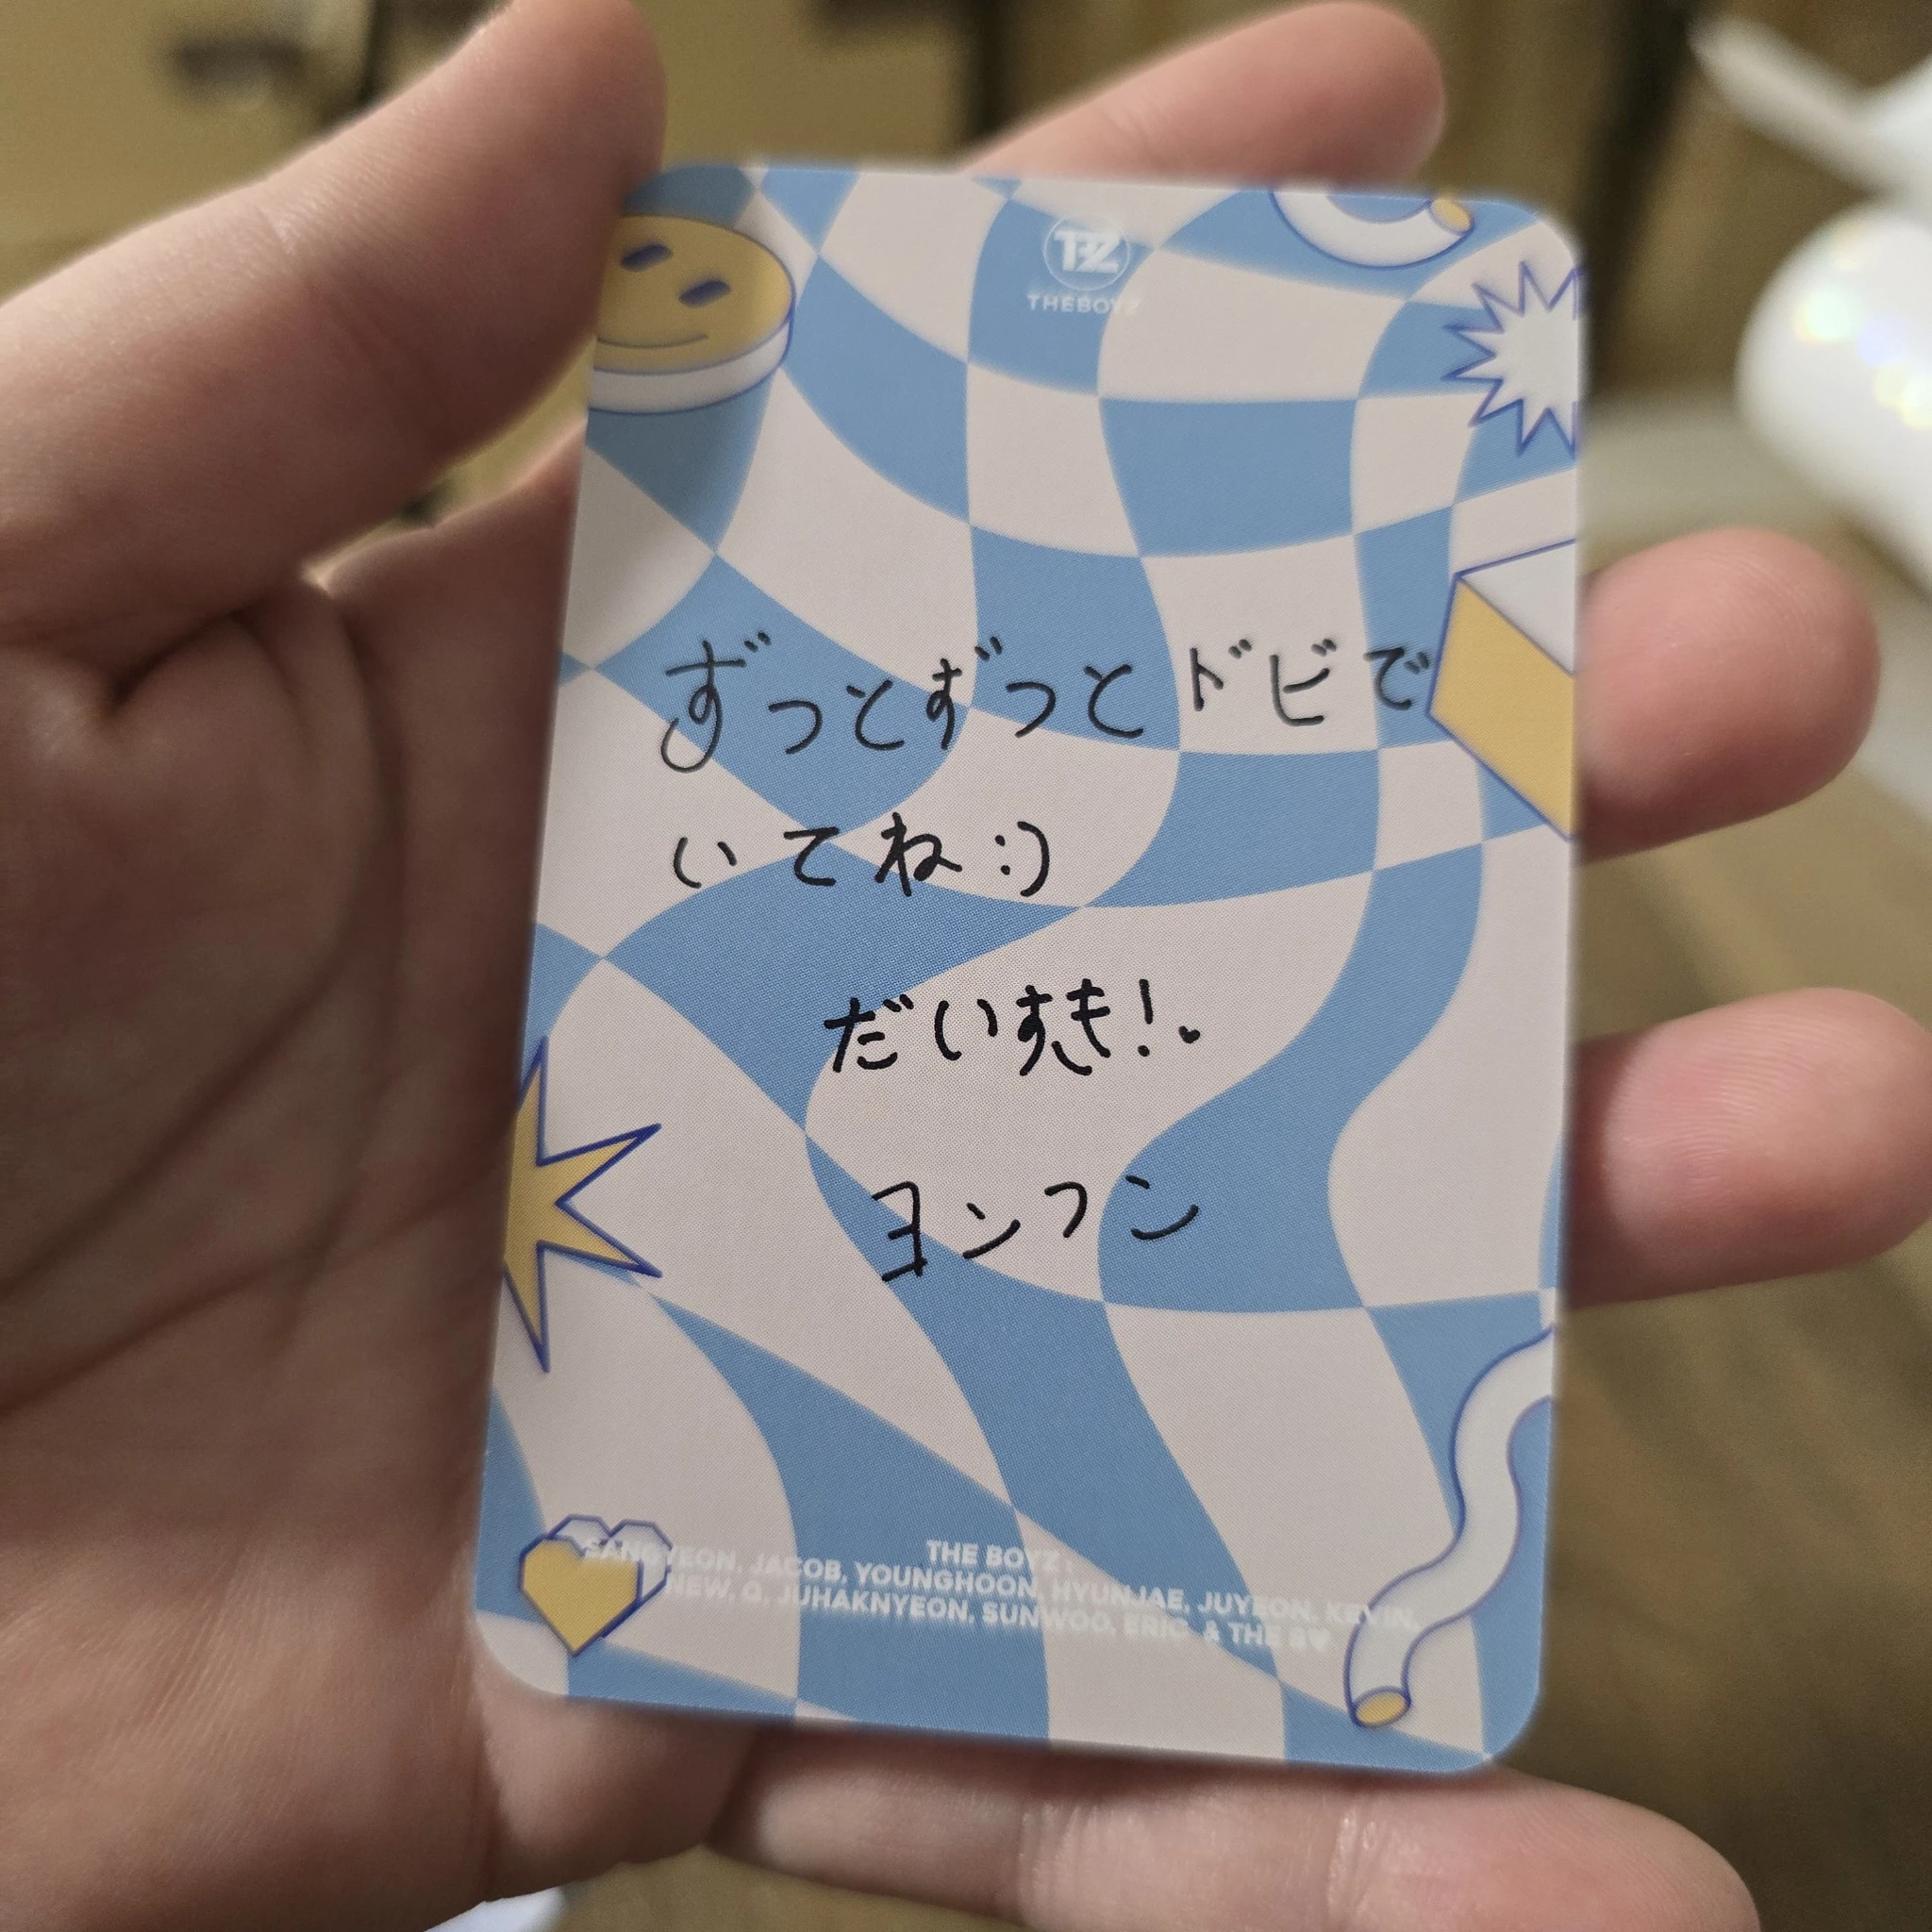 TBZ
THEBOYZ
ずっとずっとドビで
いてね:)
だいすき!♥
ヨンフン
THE BOYZ :
SANGYEON, JACOB, YOUNGHOON, HYUNJAE, JUYEON, KEVIN,
NEW, Q, JUHAKNYEON, SUNWOO, ERIC & THE B♥